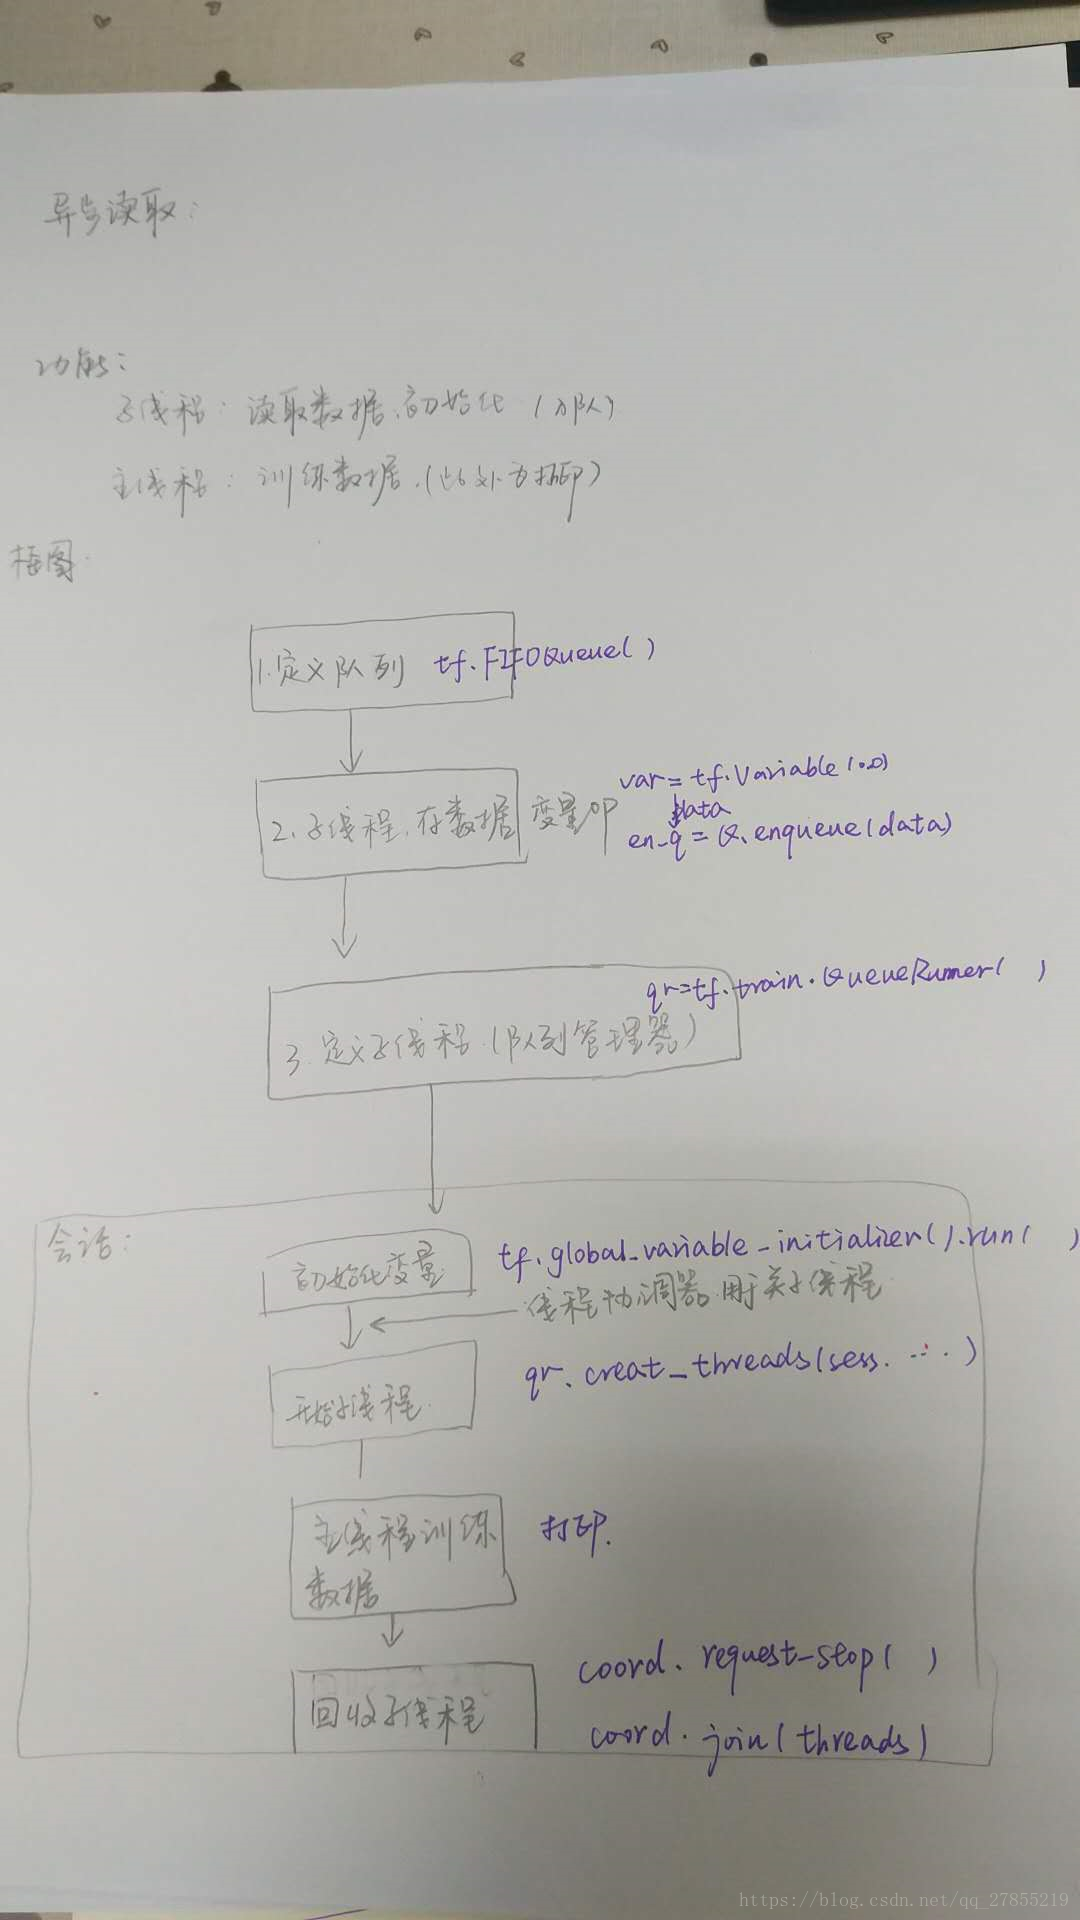 异步读取:
功能:
子线程: 读取数据,初始化 (入队)
主线程: 训练数据.(此处为打印)
框图.
1.定义队列 tf.FIFOQueue( )
var= tf.Variable(0.0)
2.子线程,存数据 变量OP
data
en_q = Q.enqueue(data)
qr=tf.train.QueueRunner( )
3.定义子线程.(队列管理器)
会话:
初始化变量 tf.global_variable_initializer().run( )
线程协调器.用于关子线程
开始子线程. qr.creat_threads(sess. ...)
主线程训练 打印.
数据
回收子线程 coord.request-stop( )
coord.join(threads)
https://blog.csdn.net/qq_27855219